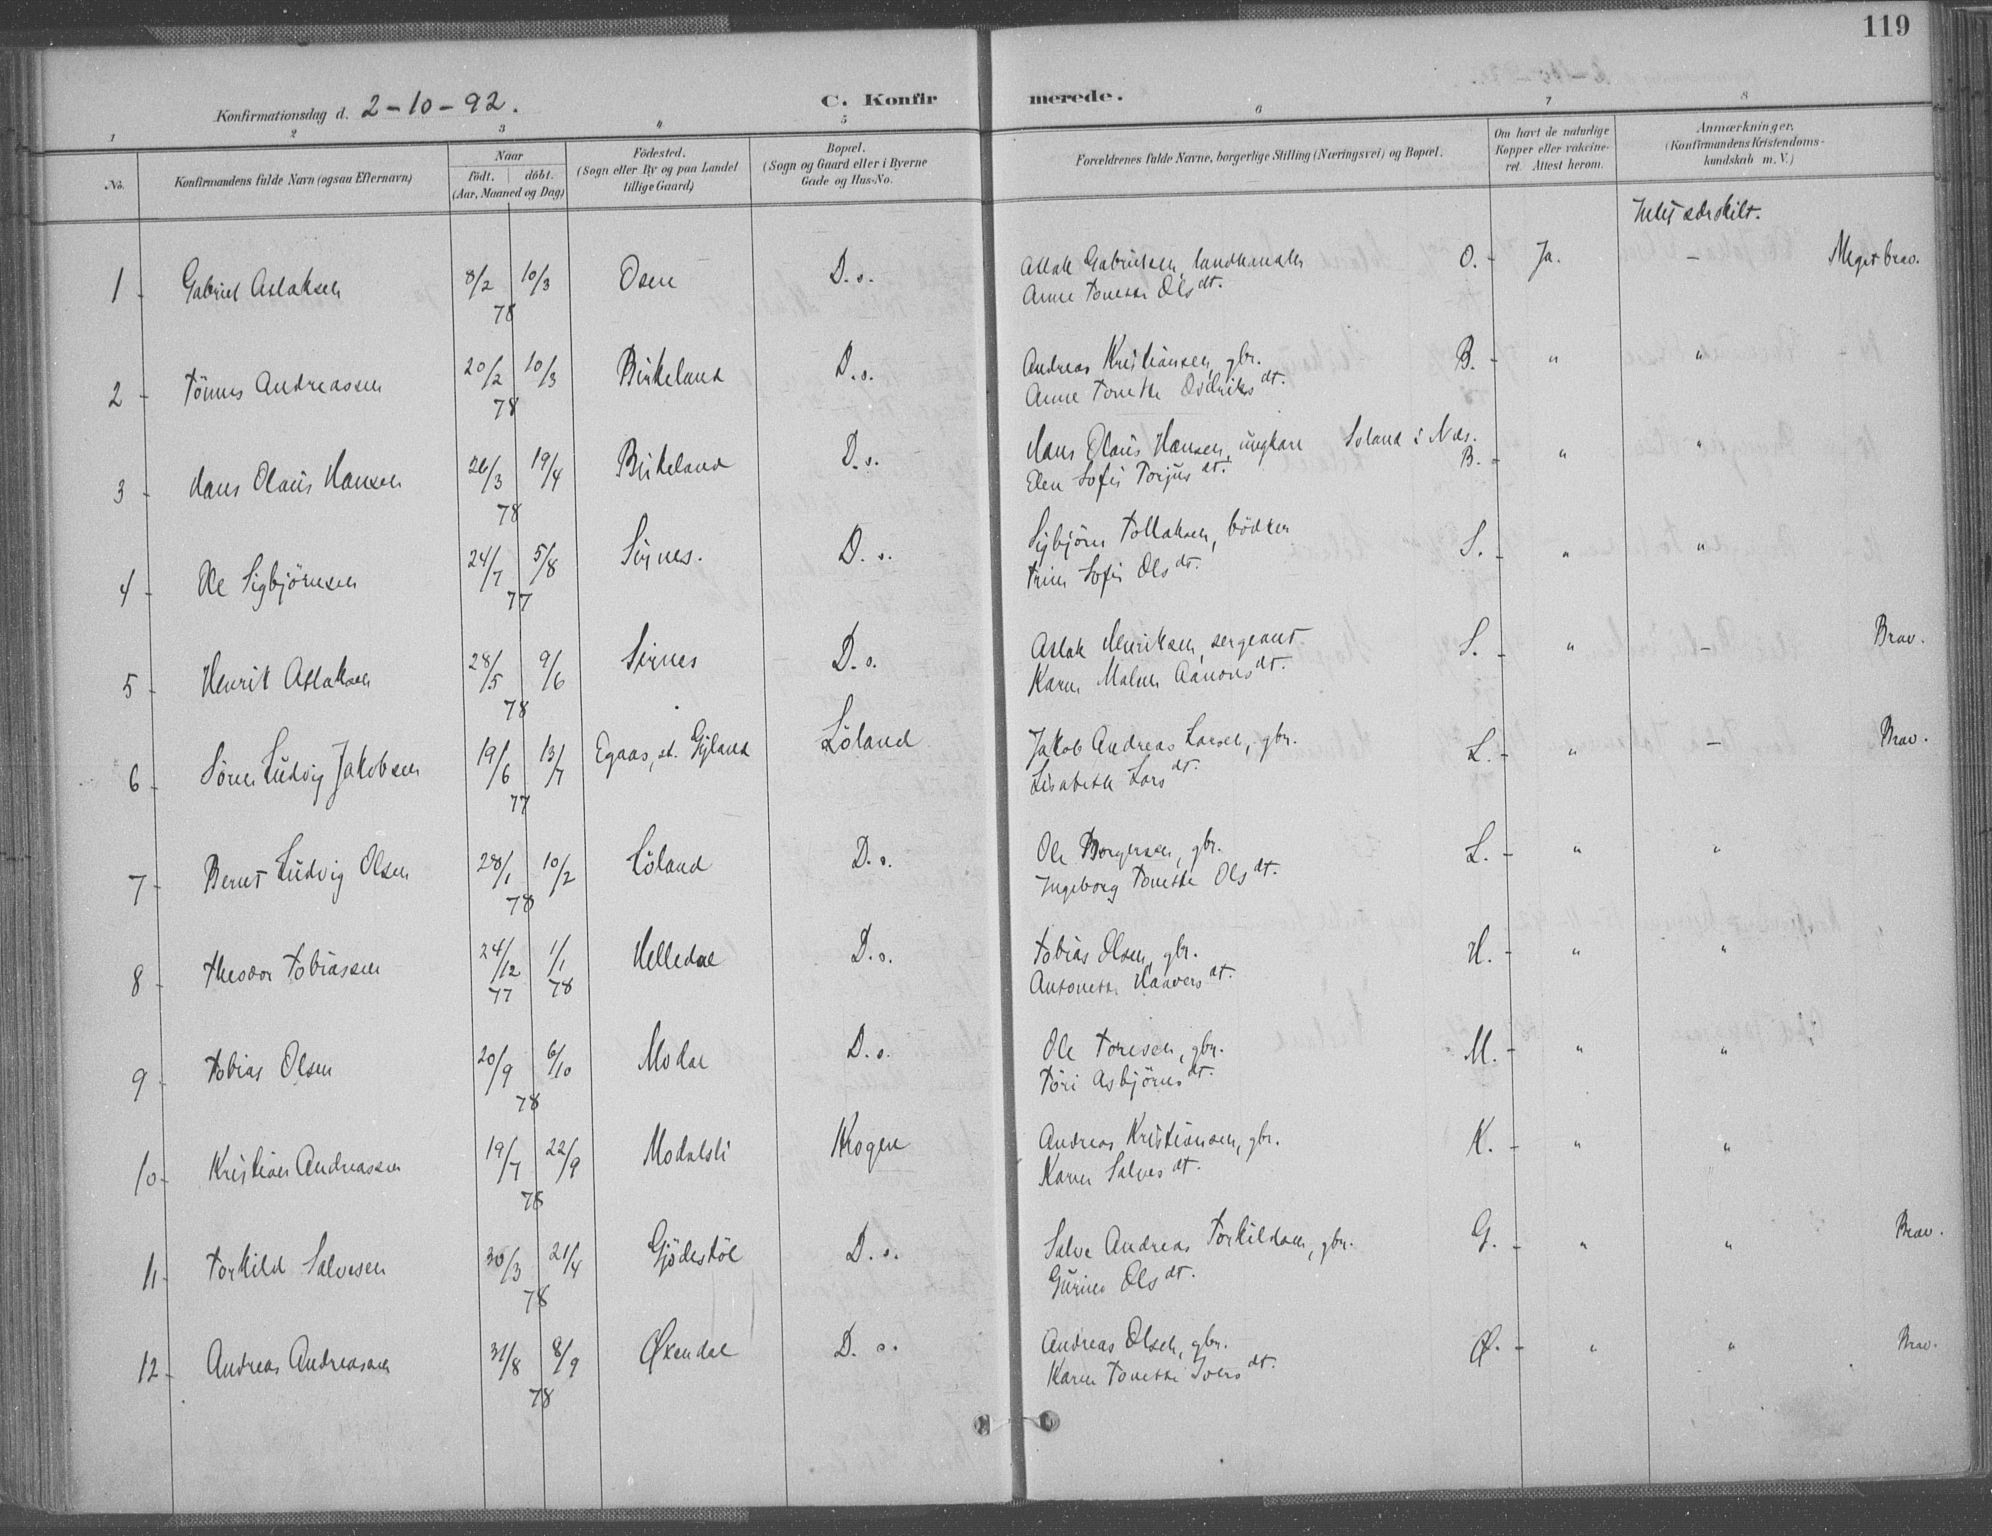 119
Konfirmationsdag d. 2-10-92.
C. Konfirmerede.
1 2 3 4 5 6 7 8
No.
Konfirmandens fulde Navn (ogsaa Efternavn)
Naar
født. døbt.
(Aar, Maaned og Dag)
Fødested.
(Sogn eller By og paa Landet
tillige Gaard)
Bopæl.
(Sogn og Gaard eller i Byerne
Gade og Hus-No.
Forældrenes fulde Navne, borgerlige Stilling (Næringsvei) og Bopæl.
Om havt de naturlige
Kopper eller vakcine-
ret. Attest herom.
Anmærkninger.
(Konfirmandens Kristendoms-
kundskab m. V.)
Intet særskilt.
1 - Gabriel Aslaksen 8/2 10/3 Osen D. s. Aslak Gabrielsen, landhandler O. - Ja. - Meget brav.
78 Anne Tonette Olsdt.
2 - Tönnes Andreassen 20/2 10/3 Birkeland D. s. Andreas Kristiansen, gbr. B. - " "
78 Anne Tonette dt.
3 - Hans Olaus Hansen 26/3 19/4 Birkeland D. s. Hans Olaus Hansen, ungkare Soland i Nds.
78 Elen Sofie Torjusdt. B. - " "
4 - Ole Sigbjörnsen 24/7 5/8 Sirnes. D. s. Sigbjörn Tollaksen, bödker S. - " "
77 Trine Sofie Olsdt.
5 - Henrik Aslaksen 28/5 9/6 Sirnes D. s. Aslak Henriksen, sergeant S. - " - Brav.
78 Karen Malene Aanonsdt.
6 - Sören Ludvig Jakobsen 19/6 13/7 Egaas, st. Gyland Löland Jakob Andreas Larsen, gbr. L. - " - Brav.
77 Lisabeth Larsdt.
7 - Bernt Ludvig Olsen 28/1 10/2 Löland D. s. Ole Borgersen, gbr. L. - " "
78 Ingeborg Tonette Olsdt.
8 - Theodor Tobiassen 24/12 1/1 Helledal D. s. Tobias Olsen, gbr. H. - " "
77 78 Antonette Haaversdt.
9 - Tobias Olsen 20/9 6/10 Modal D. s. Ole Toresen, gbr. M. - " "
78 Tori Asbjörnsdt.
10 - Kristian Andreassen 19/7 22/9 Modalsli Krogen Andreas Kristiansen, gbr. K. - " "
78 Karen Salvesdt.
11 - Torkild Salvesen 30/3 21/4 Gjödestöl D. s. Salve Andreas Torkildsen, gbr. G. - " " Brav.
78 Gurine Olsdt.
12 - Andreas Andreassen 31/8 8/9 Øxendal D. s. Andreas Olsen, gbr. Ø. - " " Brav.
78 Karen Tonette Iversdt.